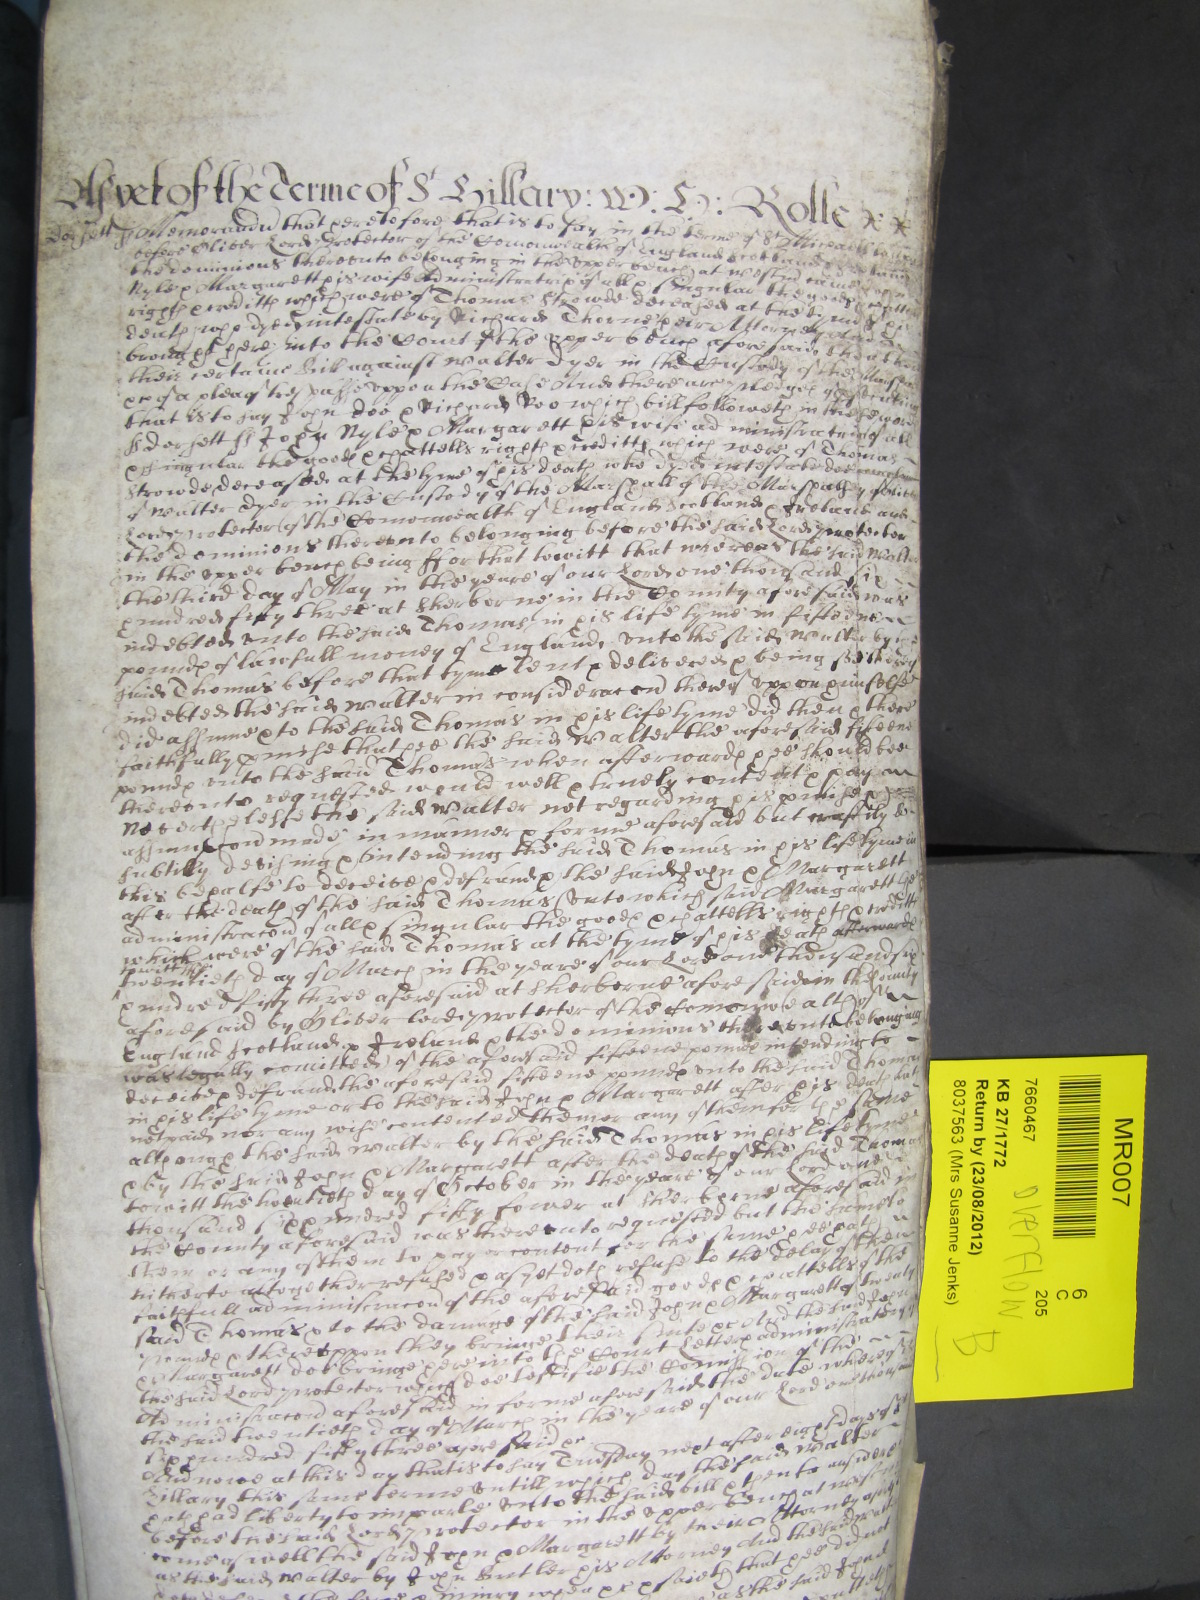 As yet of the Terme of St Hillary: W: H: Rolle
Dorsett ss Memorandu that heretofore that is to say in the terme of St Michaell
before Oliver Lord Protector of the Comonwealth of England Scotland & Ireland
the dominions thereunto belonging in the upper bench at Westmr came John
Nyle & Margarett his wife Administratrix of all & singular the goods
right & creditt which were of Thomas Strowde deceased at the tyme of his
death who dyed intestate by Richard Thorne their Attorney
brought here into the Court of the upper bench aforesaid then & there
their certaine bill against Walter Dyer in the Custody of the Marshall
&c of a plea of trespasse uppon the Case And there are pledges of prosecuting
that is to say John Doe & Richard Roo which bill followeth in these words
ss Dorsett ss John Nyle & Margarett his wife administratrix of all
& singular the goods & chattells right & creditt which were of Thomas
Strowde deceased at the tyme of his death who dyed intestate doe complaine
of Walter Dyer in the Custody of the Marshall of the Marshalsey of the
Lord Protector of the Comonwealth of England Scotland & Ireland and
the dominions thereunto belonging before the said Lord Protector
in the upper bench being ffor that towitt that whereas the said Walter
the third day of May in the yeare of our Lord one thousand six
hundred fifty three at Sherborne in the County aforesaid was
indebted unto the said Thomas in his life tyme in fifteene
pounds of lawfull money of England unto the said Walter by the
said Thomas before that tyme lent & delivered & being soe thereof
indebted the said Walter in consideracon thereof uppon himselfe
did assume & to the said Thomas in his life tyme did then & there
faithfully promise that hee the said Walter the aforesaid fifteene
pounds unto the said Thomas when afterwards hee should bee
thereunto requested would well & truely content & pay
Neverthelesse the said Walter not regarding his promise &
assumpcon made in manner & forme aforesaid but craftily &
subtilly devising & intending the said Thomas in his life tyme in
this behalfe to deceive & defraud & the said John & Margarett
after the death of the said Thomas (unto which said Margarett the
administracon of all & singular the goods & chattells right & creditt
which were of the said Thomas at the tyme of his death afterwards
towitt the
twentieth day of March in the yeare of our Lord one thousand six
hundred fifty three aforesaid at Sherborne aforesaid in the County
aforesaid by Oliver Lord Protector of the Comonwealth of
England Scotland & Ireland & the dominions thereunto belonging
was legally comitted) of the aforesaid fifteene pounds intending to
deceive & defraud the aforesaid fifteene pounds unto the said Thomas
in his life tyme or to the said John & Margarett after his death hath
not paid nor any wise contented them or any of them for the same
although the said Walter by the said Thomas in his life tyme
& by the said John & Margarett after the death of the said Thomas
towitt the twentieth day of October in the yeare of our Lord one
thousand six hundred fifty fower at Sherborne aforesaid in
the County aforesaid was thereunto requested but the same to
them or any of them to pay or content for the same hee hath
hitherto altogether refused & as yet doth refuse to the delay of the
faithfull administracon of the aforesaid goods & chattells of the
said Thomas & to the damage of the said John & Margarett of twenty
pounds & thereuppon they bringe their suite &c And the said John
& Margarett doe bringe here into the Court letters administratory of
the said Lord Protector which doe testifie the Comission of the
Administracon aforesaid in forme aforesaid the date whereof is
the said twentieth day of March in the yeare of our Lord one thousand
six hundred fifty three aforesaid &c
And nowe at this day that is to say Tuesday next after eight dayes of St
Hillary this same terme untill which day the said Walter
hath had liberty to imparle unto the said bill & then to answere
before the said Lord Protector in the upper bench at Westmr
come aswell the said John & Margarett by their Attorney aforesaid
as the said Walter by John Butler his Attorney And the said Walter
injury when &c & saieth that hee did not
as the said John
MR007
6
C
205
7660467
KB 27/1772
Return by (23/08/2012)
8037563 (Mrs Susanne Jenks)
OVERFLOW
B